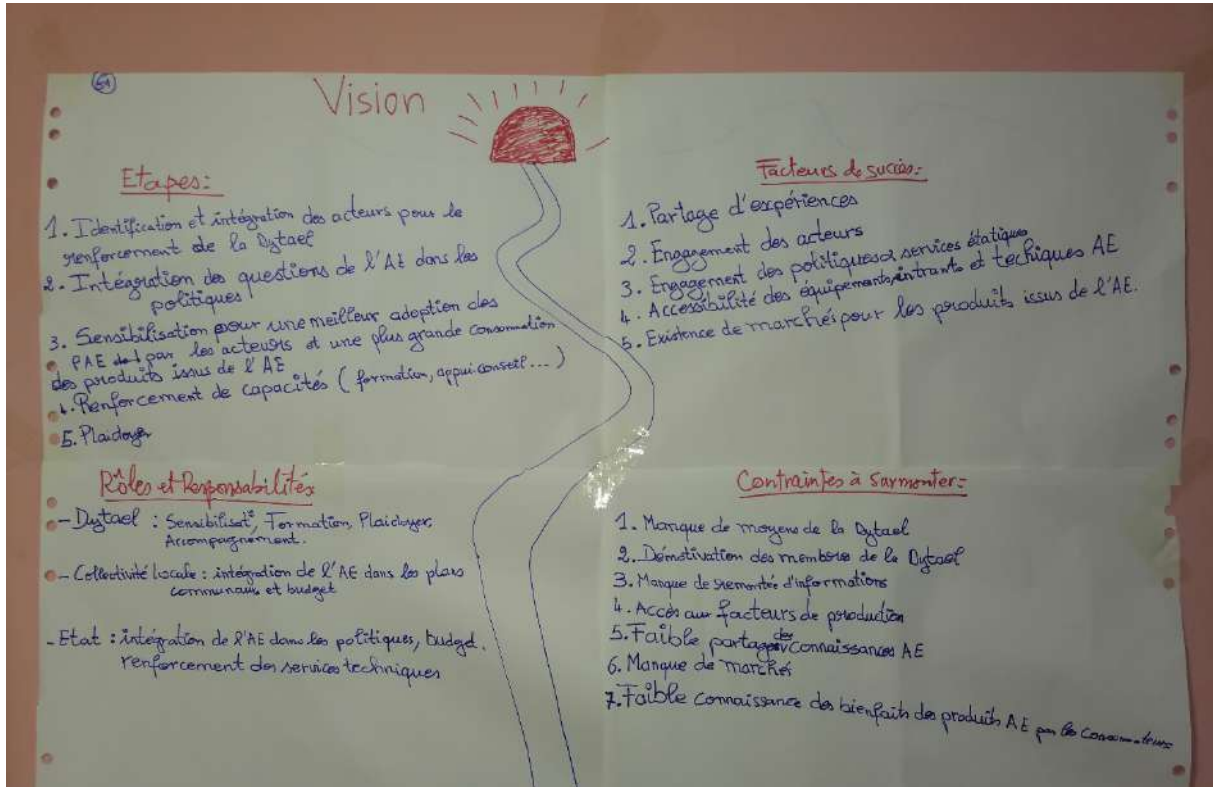 G1
Vision
Etapes:
1. Identification et intégration des acteurs pour le
renforcement de la Dytael
2. Intégration des questions de l'AE dans les
politiques
3. Sensibilisation pour une meilleur adoption des
PAE par les acteurs et une plus grande consommation
des produits issus de l'AE
4. Renforcement de capacités (formation, appui conseil...)
5. Plaidoyer
Rôles et Responsabilités
- Dytael : Sensibilisat°, Formation, Plaidoyer,
Accompagnement.
- Collectivité Locale : intégration de l'AE dans les plans
communaux et budget
- Etat : intégration de l'AE dans les politiques, budget.
renforcement des services techniques
Facteurs de succès:
1. Partage d'expériences
2. Engagement des acteurs
3. Engagement des politiques services étatiques
4. Accessibilité des équipements, intrants et techiques AE
5. Existence de marchés pour les produits issus de l'AE.
Contraintes à Surmonter:
1. Manque de moyens de la Dytael
2. Démotivation des membres de la Dytael
3. Manque de remontée d'informations
4. Accès aux facteurs de production
5. Faible partage des connaissances AE
6. Manque de marchés
7. Faible connaissance des bienfaits des produits AE par les consommateurs